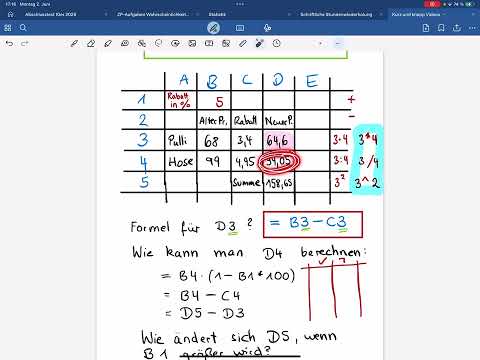 17:16 Montag 2. Juni
74 %
Abschlusstest Klas 2025
ZP-Aufgaben Wahrscheinlichkeit...
Statistik
Schriftliche Stundenwiederholung
Kurz und knapp Videos
A B C D E
1 Rabatt in % 5 +
2 Alter Pr. Rabatt Neuer P. -
3 Pulli 68 3,4 64,6 3·4 3*4
4 Hose 99 4,95 94,05 3:4 3/4
5 Summe 158,65 3² 3^2
Formel für D3? = B3-C3
Wie kann man D4 berechnen:
= B4·(1-B1*100)
= B4-C4
= D5-D3
Wie ändert sich D5, wenn
B1 größer wird?